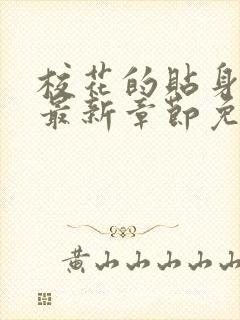 校花的貼身
最新章節免
黄山山山山